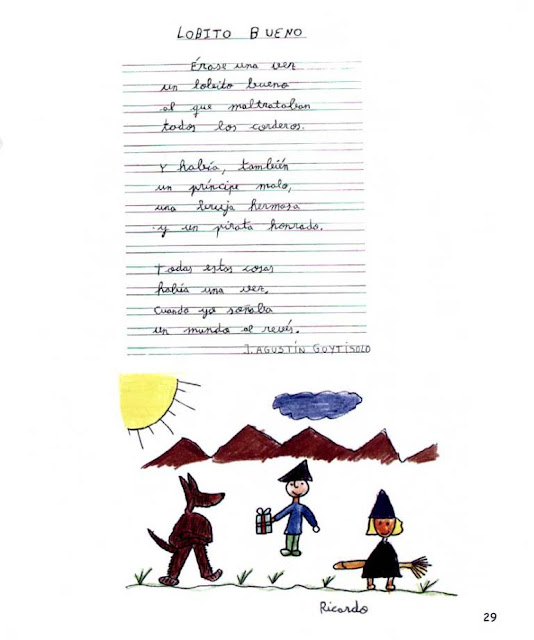 LOBITO BUENO
Érase una vez
un lobito bueno
al que maltrataban
todos los corderos.
Y había, también
un príncipe malo,
una bruja hermosa
y un pirata honrado.
Todas estas cosas
había una vez.
Cuando yo soñaba
un mundo al revés.
J. AGUSTÍN GOYTISOLO
Ricardo
29